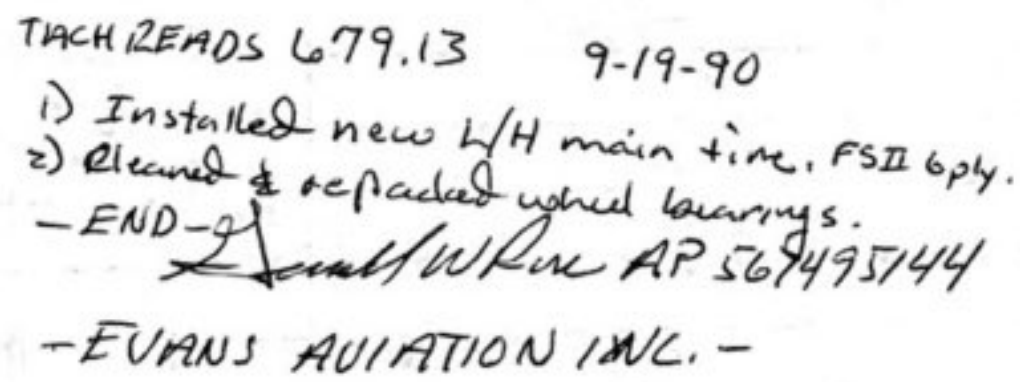 TACH READS 679.13 9-19-90
1) Installed new L/H main tire. FSII 6 ply.
2) Cleaned & repacked wheel bearings.
-END-
W AP 569495144
-EVANS AVIATION INC.-